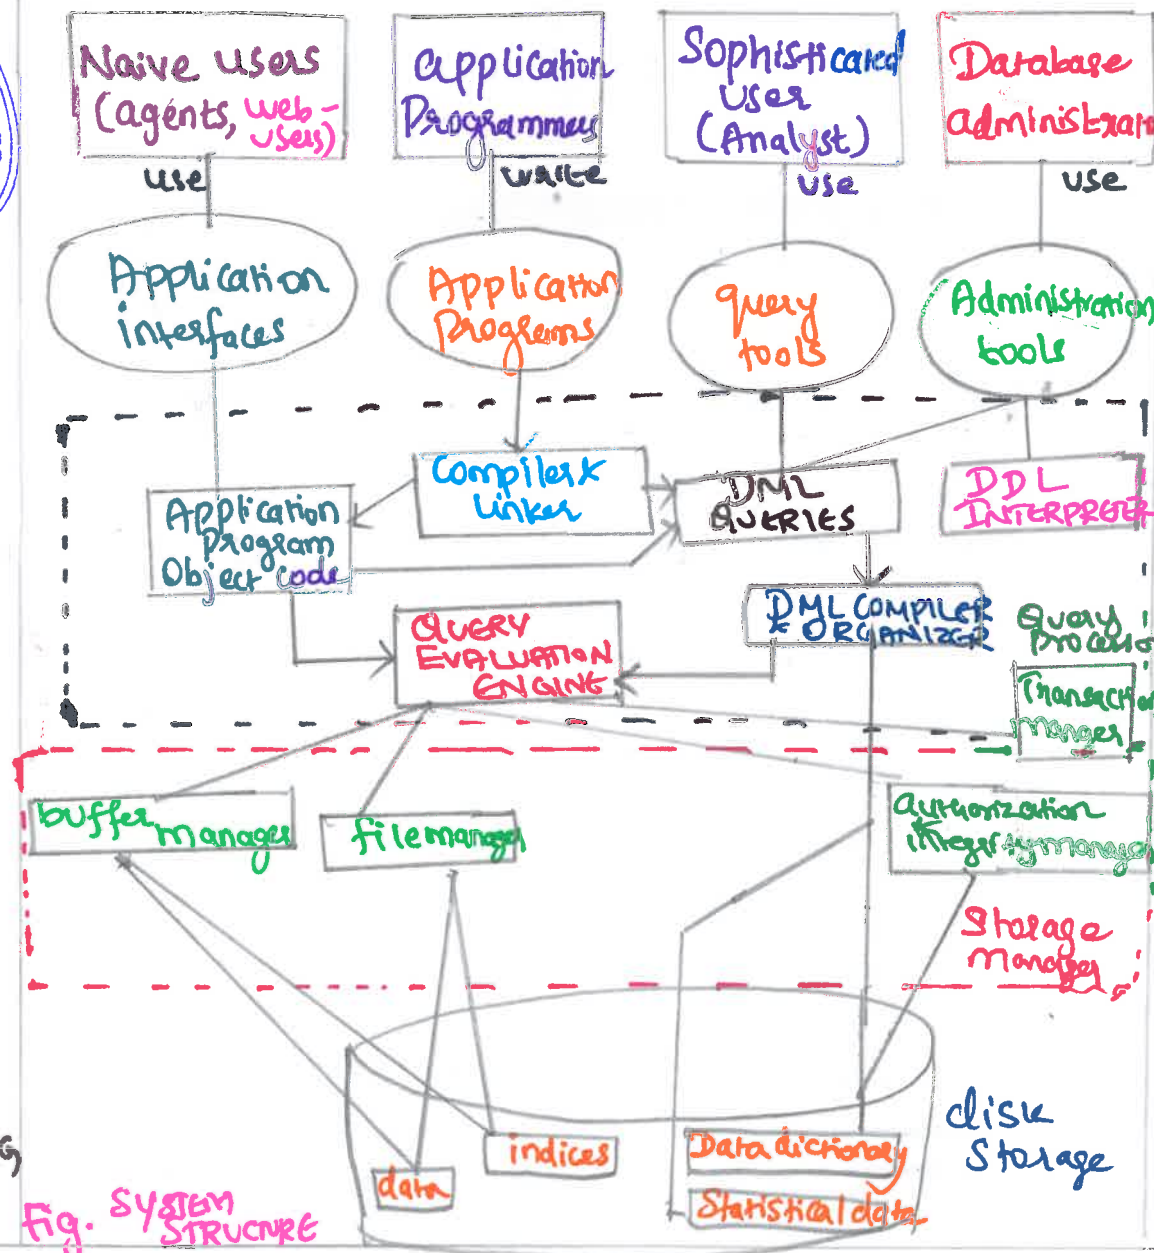 Naive users
(agents, web-
users)
use
application
Programmers
write
Sophisticated
user
(Analyst)
use
Database
administrator
use
Application
interfaces
Application
Programs
query
tools
Administration
tools
Compiler &
Linker
DML
QUERIES
DDL
INTERPRETER
Application
Program
Object Code
QUERY
EVALUATION
ENGINE
DML COMPILER
& ORGANIZER
Query
Processo
Transaction
manger
buffer manager
file manager
authorization
integrity manager
Storage
Manager
indices
data
Data dictionary
Statistical data
disk
Storage
Fig. SYSTEM
STRUCTURE